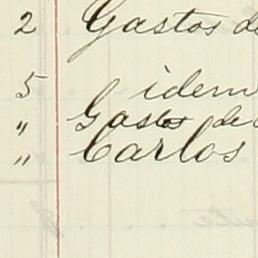 2 Gastos de
5 idem
" Gastos de
" Carlos